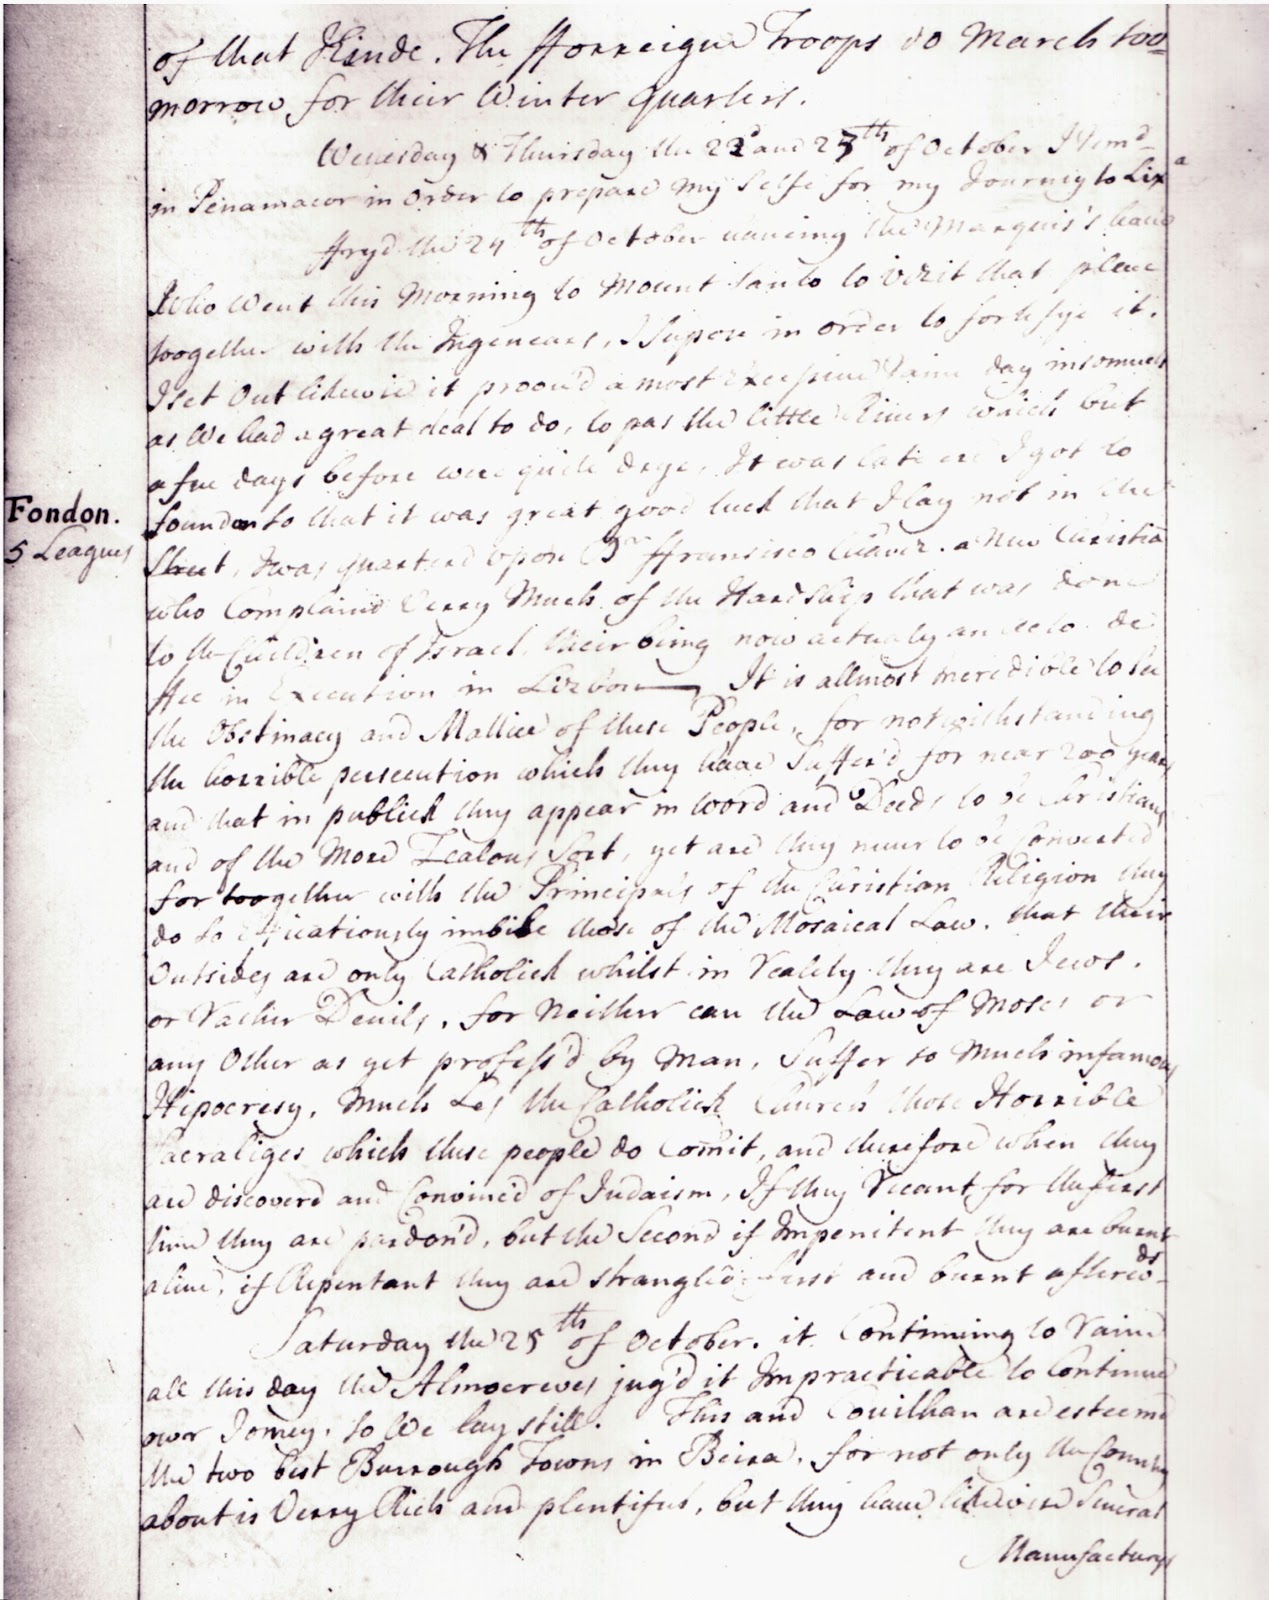 of that Kinde. The fforreigne Troops do March too=
morrow for their Winter quarters.
Wenesday & Thursday the 22d and 23th of October I rem'd
in Penamacor in order to prepare my selfe for my Journey to Lixa
ffryd the 24th of October haveing the Marquis's leave
Who went this Morning to Mount Santo to vizit that place
toogether with the Ingeneers, I Supose in order to fortifye it.
I set Out likewise it proov'd a most Excessive Raine day insomuch
as We had a great deal to do, to pas the little Rivers which but
a few days before were quite drye. It was late ere I got to
Fondon.
5 Leagues
foundon so that it was great good luck that I lay not in the
Street, I was quarterd upon Dr ffransisco Chavez. a New Christia
who Complaind Verry Much of the Hardship that was done
to the Children of Israel, their being now actualy an Aucto de
ffee in Execution in Lizbon It is allmost incredible to see
the Obstinacy and Mallice of these People, for notwithstanding
the horrible persecution which they have Suffer'd for near 200 years
and that in publick they appear in word and Deeds to be Christians
and of the More Zealous Sort, yet are they never to be Converted
for toogether with the Principals of the Christian Religion they
do so imbibe those of the Mosaical Law. that their
Outsides are only Catholick whilst in reality they are Jews.
or rather Devils, for Neither can the Law of Moses or
any Other as yet profess'd by Man, Suffer so Much infamous
Hipocresy, Much Les the Catholick Church those Horrible
Sacraliges which these people do Comit, and therefore when they
are discoverd and Convinc'd of Judaism, If they recant for the first
time they are pardon'd, but the Second if Impenitent they are burnt
alive, if Repentant they are strangled first and burnt afterwds
Saturday the 25th of October. it Continuing to raine
all this day the Almocreves jug'd it Impracticable to Continue
owr Jorney, so We lay still. This and Covilhan are esteemd
the two best Burrough Towns in Beira, for not only the Country
about is Verry Rich and plentiful, but they have likewise several
Manufacturys